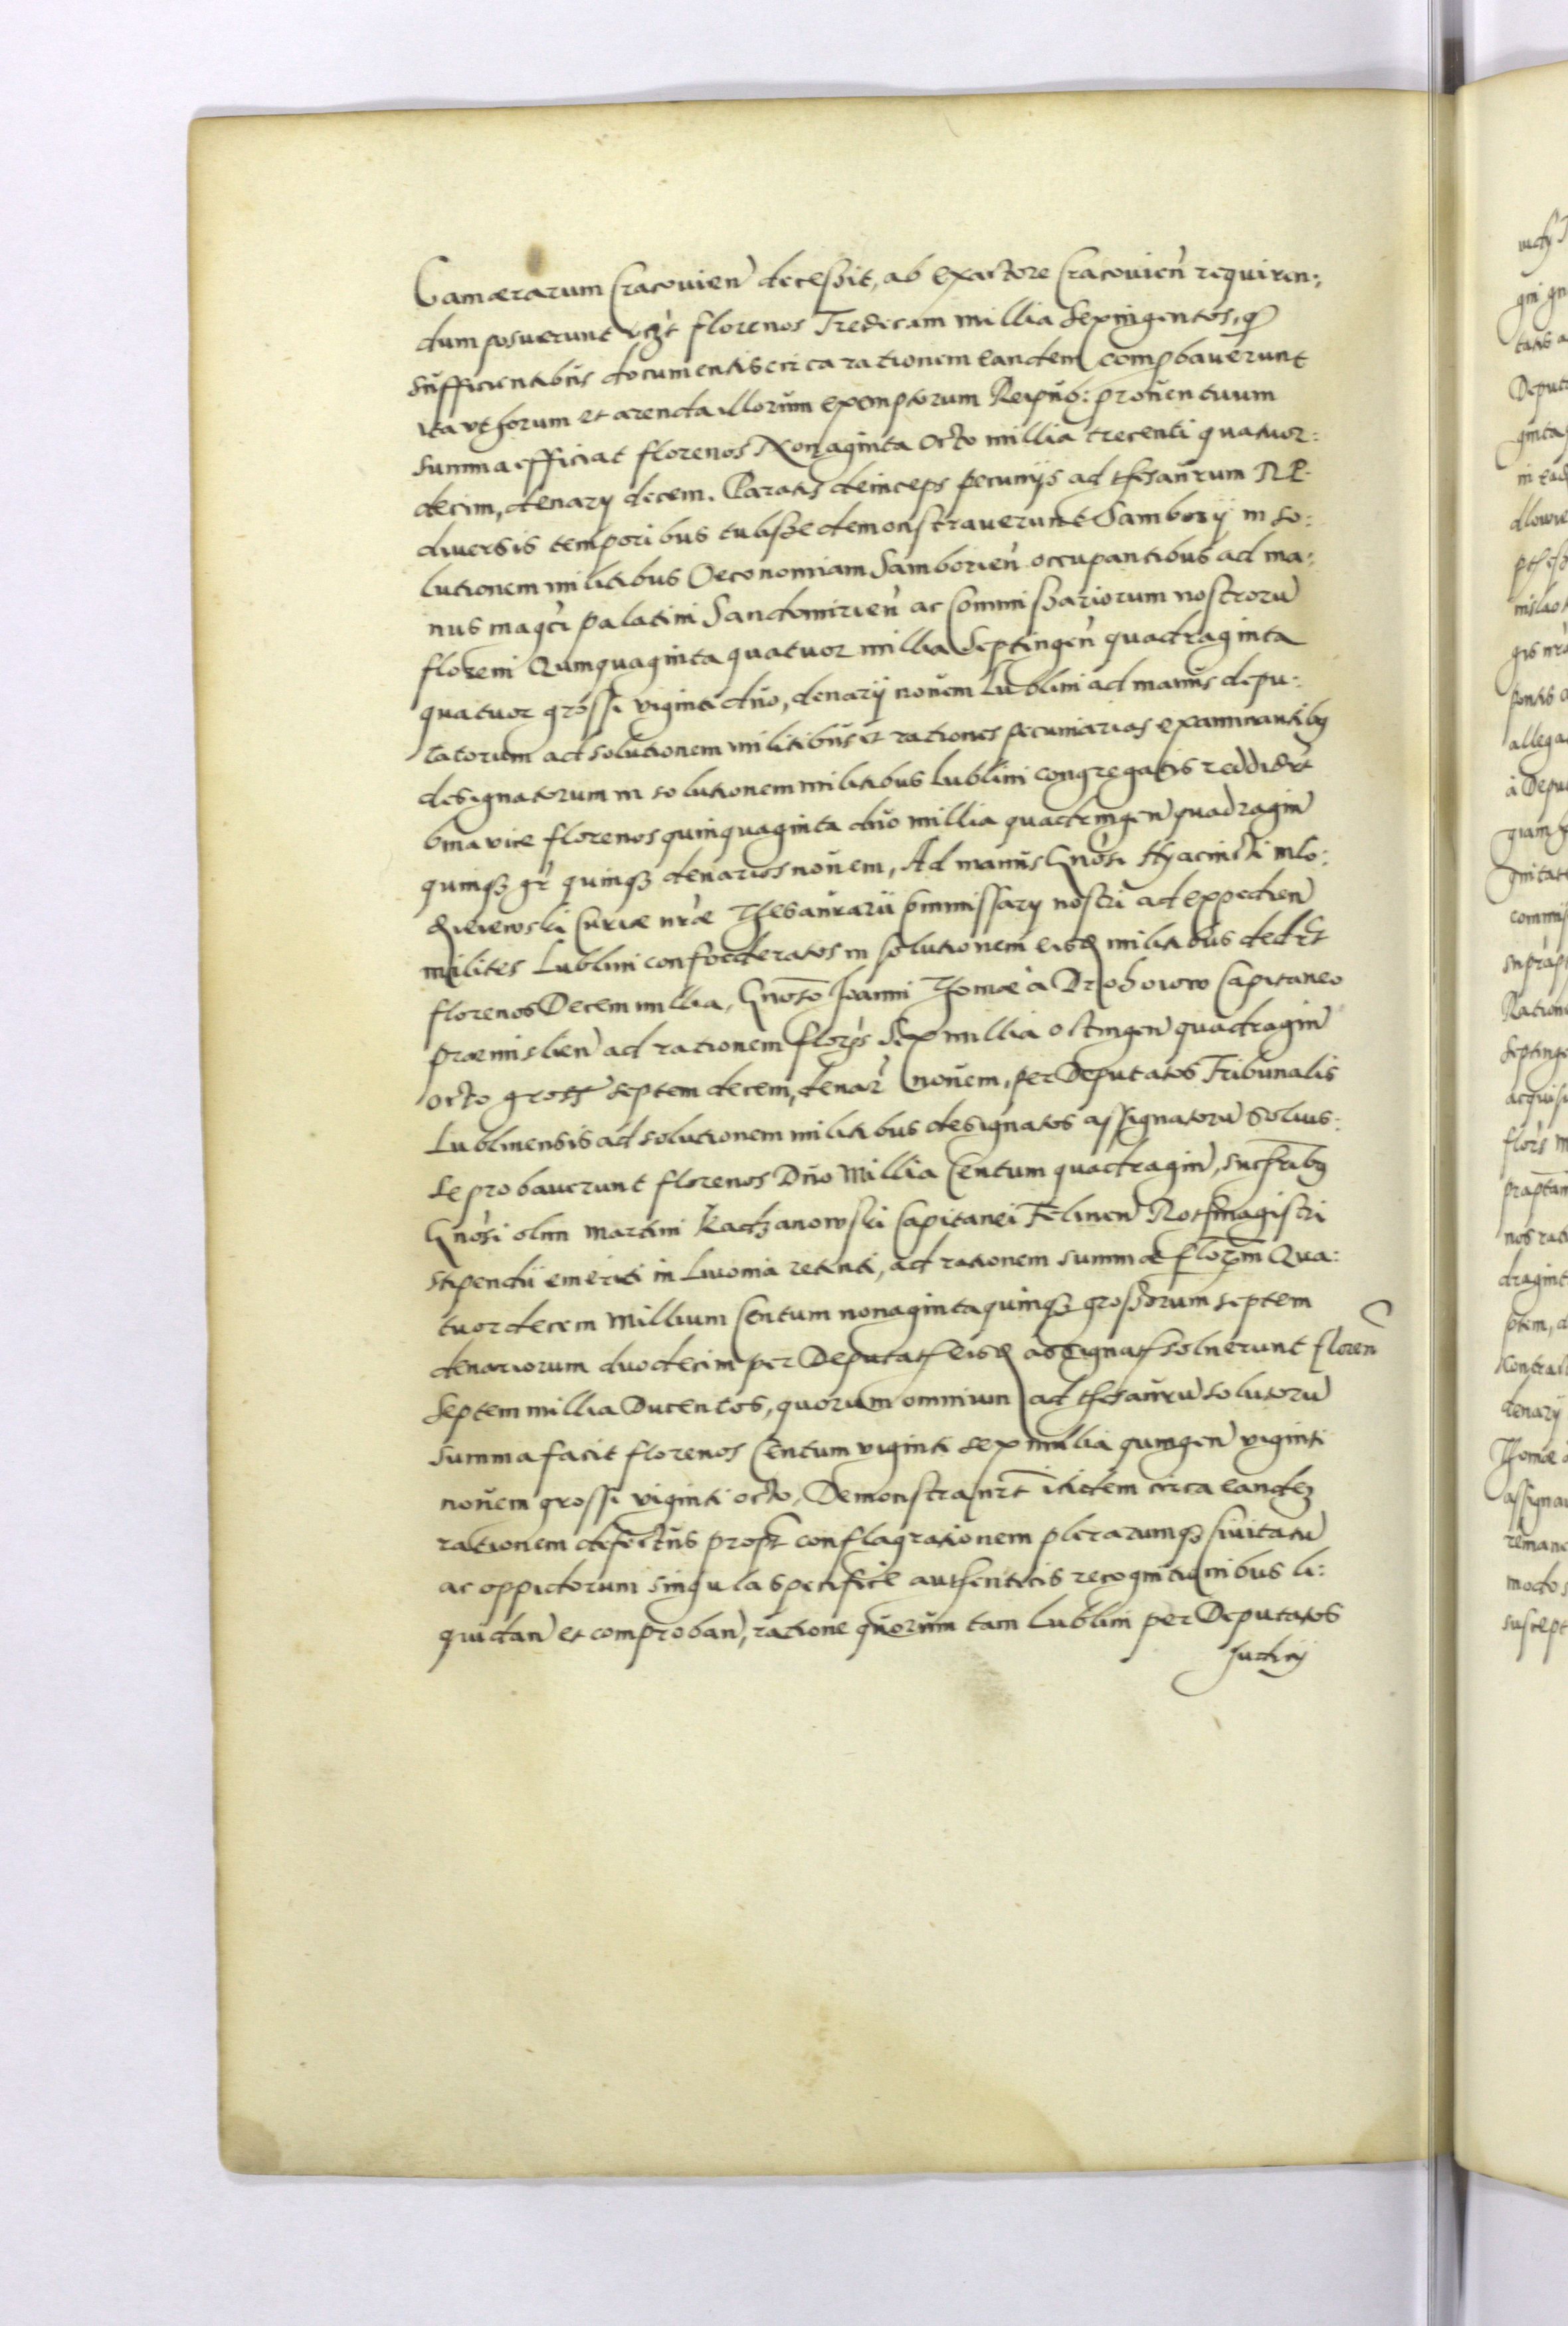 Camærarum Cracovien̄ decessit, ab Exactore Cracovien̄ requiren:
dum posuerunt vᵹt florenos Tredecim millia Sexingentos, qd
sufficientibus documentis circa rationem eandem comp̱bauerunt
ita vt horum et arenda illorum exemptorum Reipub: prouentuum
summa efficiat florenos Nonaginta Octo millia trecenti quatuor:
decim, denarÿ decem. Paratis deinceps pecunÿs ad thesaurum RP.
diuersis temporibus eubsse demonstrauerunt Samborÿ in so:
lutionem militibus Oeconomiam Samborien̄ occupantibus ad ma:
nus magci palatini Sandomirien̄ ac Commissariorum nostrorū
floreni Quinquaginta quatuor millia Septingen̄ quadraginta
quatuor grossi viginti duo, denarÿ nouem Lublini ad manus depu:
tatorum ad solutionem militibus et rationes pecuniarias examinantibꝫ
designatorum in solutionem militibus Lublini congregatis reddidert
bina vice florenos quinquaginta duo millia quadringen̄ quadragin̄
quinqꝫ gr̄ quinqꝫ denarios nouem, Ad manus Gnōsi Hyacincti mlo:
dziewski Curiæ nr̄æ Thesaurarii Commissarÿ nostri ad expedien̄
milites Lublini confoederatos in solutionem eisd militibus dedrt
florenos Decem millia, Gnoso Ioanni Thomæ à Drohoiow Capitaneo
præmislien̄ ad rationem florp̄s Sex millia octingen̄ quadragin̄
octo gross septem decem, denar̄ nouem, per Deputatos Tribunalis
Lublinensis ad solutionem militibus designatos assignatorū soluis:
se probauerunt florenos Duo Millia Centum quadragin̄, Sucr̄ibꝫ
Gnōsi olim Martini Kachanowski Capitanei Felinen̄ Rothmagistri
stipendii emeriti in Liuonia retenti, ad rationem summæ florm̄ Qua:
tuordecem Millium Centum nonaginta quinqꝫ grossorum septem
denariorum duodecim per Deputat eisd assignat soluerunt floren̄
Septem millia Ducentos, quorum omnium ad thesaurū solutorū
summa facit florenos Centum viginti sex millia quingen̄ viginti
nouem grossi viginti octo, Demonstrarūt itidem circa eandeꝫ
rationem defectus propt conflagrationem plerarumqꝫ Ciuitatū
ac oppidorum singula specifice authenticis recognitionibus li:
quidan̄ et comproban̄, ratione quorum tam Lublini per Deputatos
Judicÿ